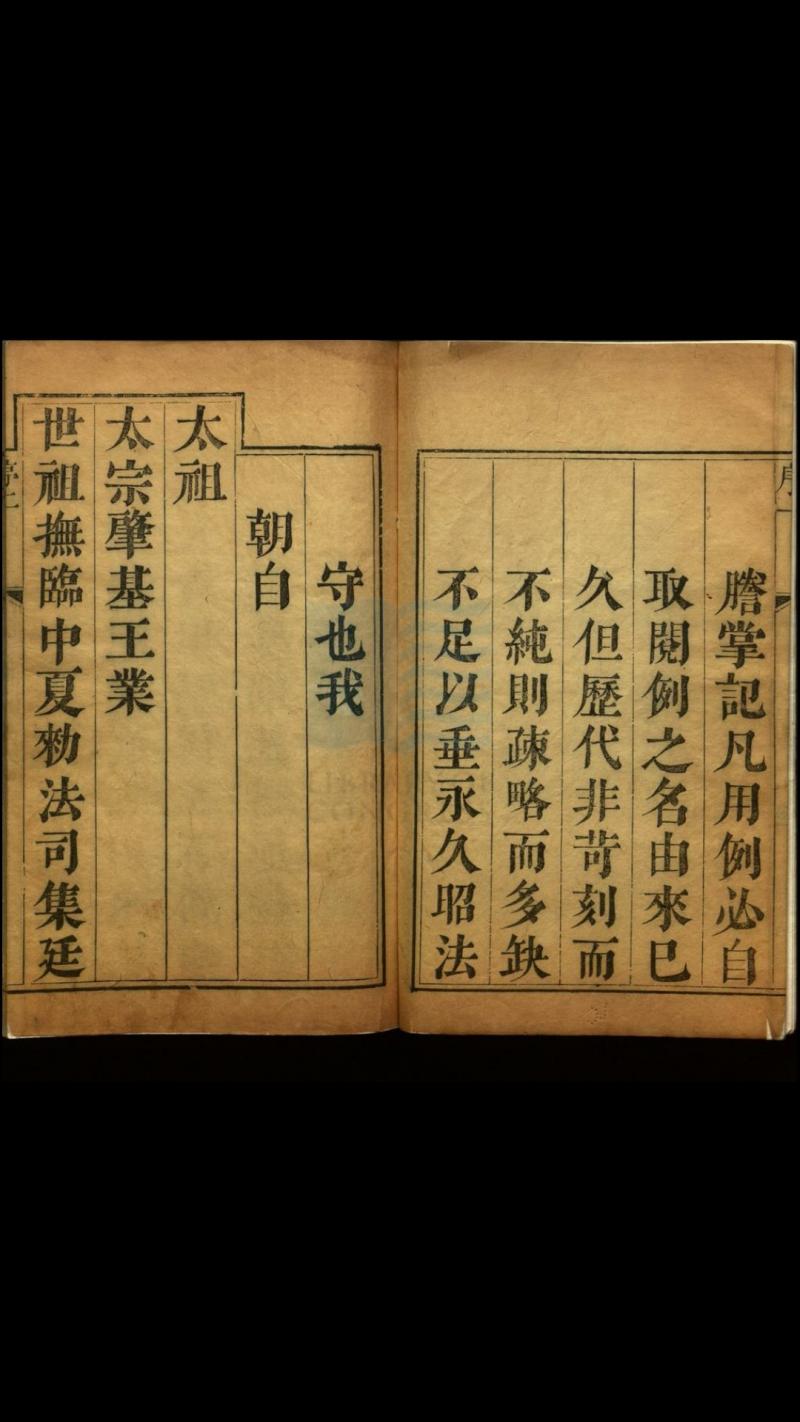 謄掌記凡用例必自
取閱例之名由來已
久但歷代非苛刻而
不純則疎略而多缺
不足以垂永久昭法
守也我
朝自
太祖
太宗肇基王業
世祖撫臨中夏勑法司集廷